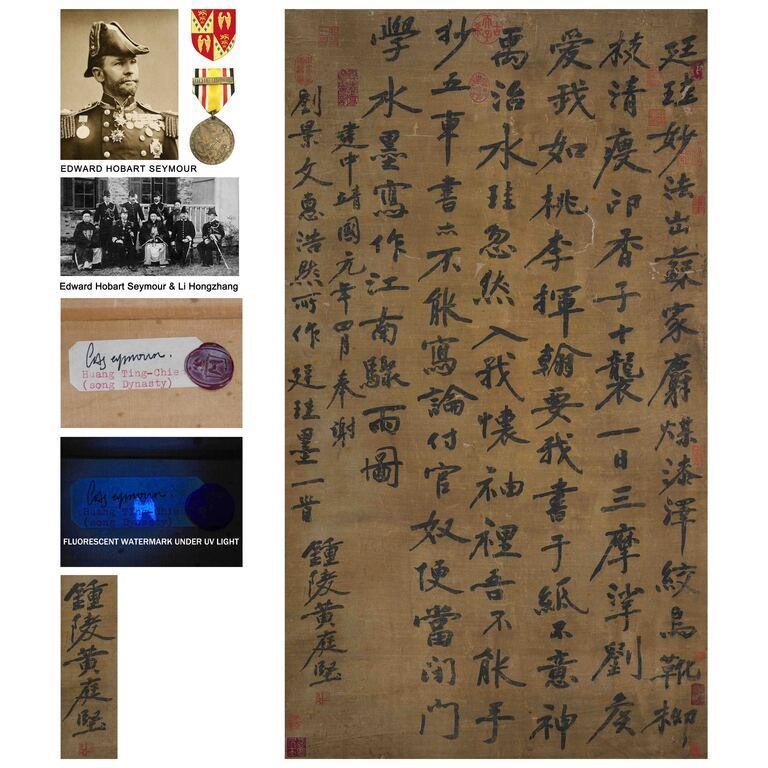 EDWARD HOBART SEYMOUR
Edward Hobart Seymour & Li Hongzhang
Huang Ting-Chie
(song Dynasty)
Huang Ting-Chie
(song Dynasty)
FLUORESCENT WATERMARK UNDER UV LIGHT
鍾陵黃庭堅
廷珪妙法出蘇家麝煤漆澤紋烏靴柳
枝清瘦印香子十襲一日三摩挲劉侯
愛我如桃李揮翰要我書于紙不意神
禹治水珪忽然入我懷袖裡吾不能手
抄五車書亦不能寫論付官奴便當閉門
學水墨寫作江南驟雨圖
建中靖國元年四月奉謝
劉景文惠浩然所作廷珪墨一首
鍾陵黃庭堅